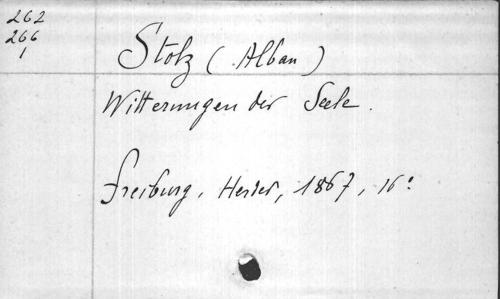 262
266
1
Stolz (Alban)
Witterungen der Seele.
Freiburg, Herder, 1867, 16º